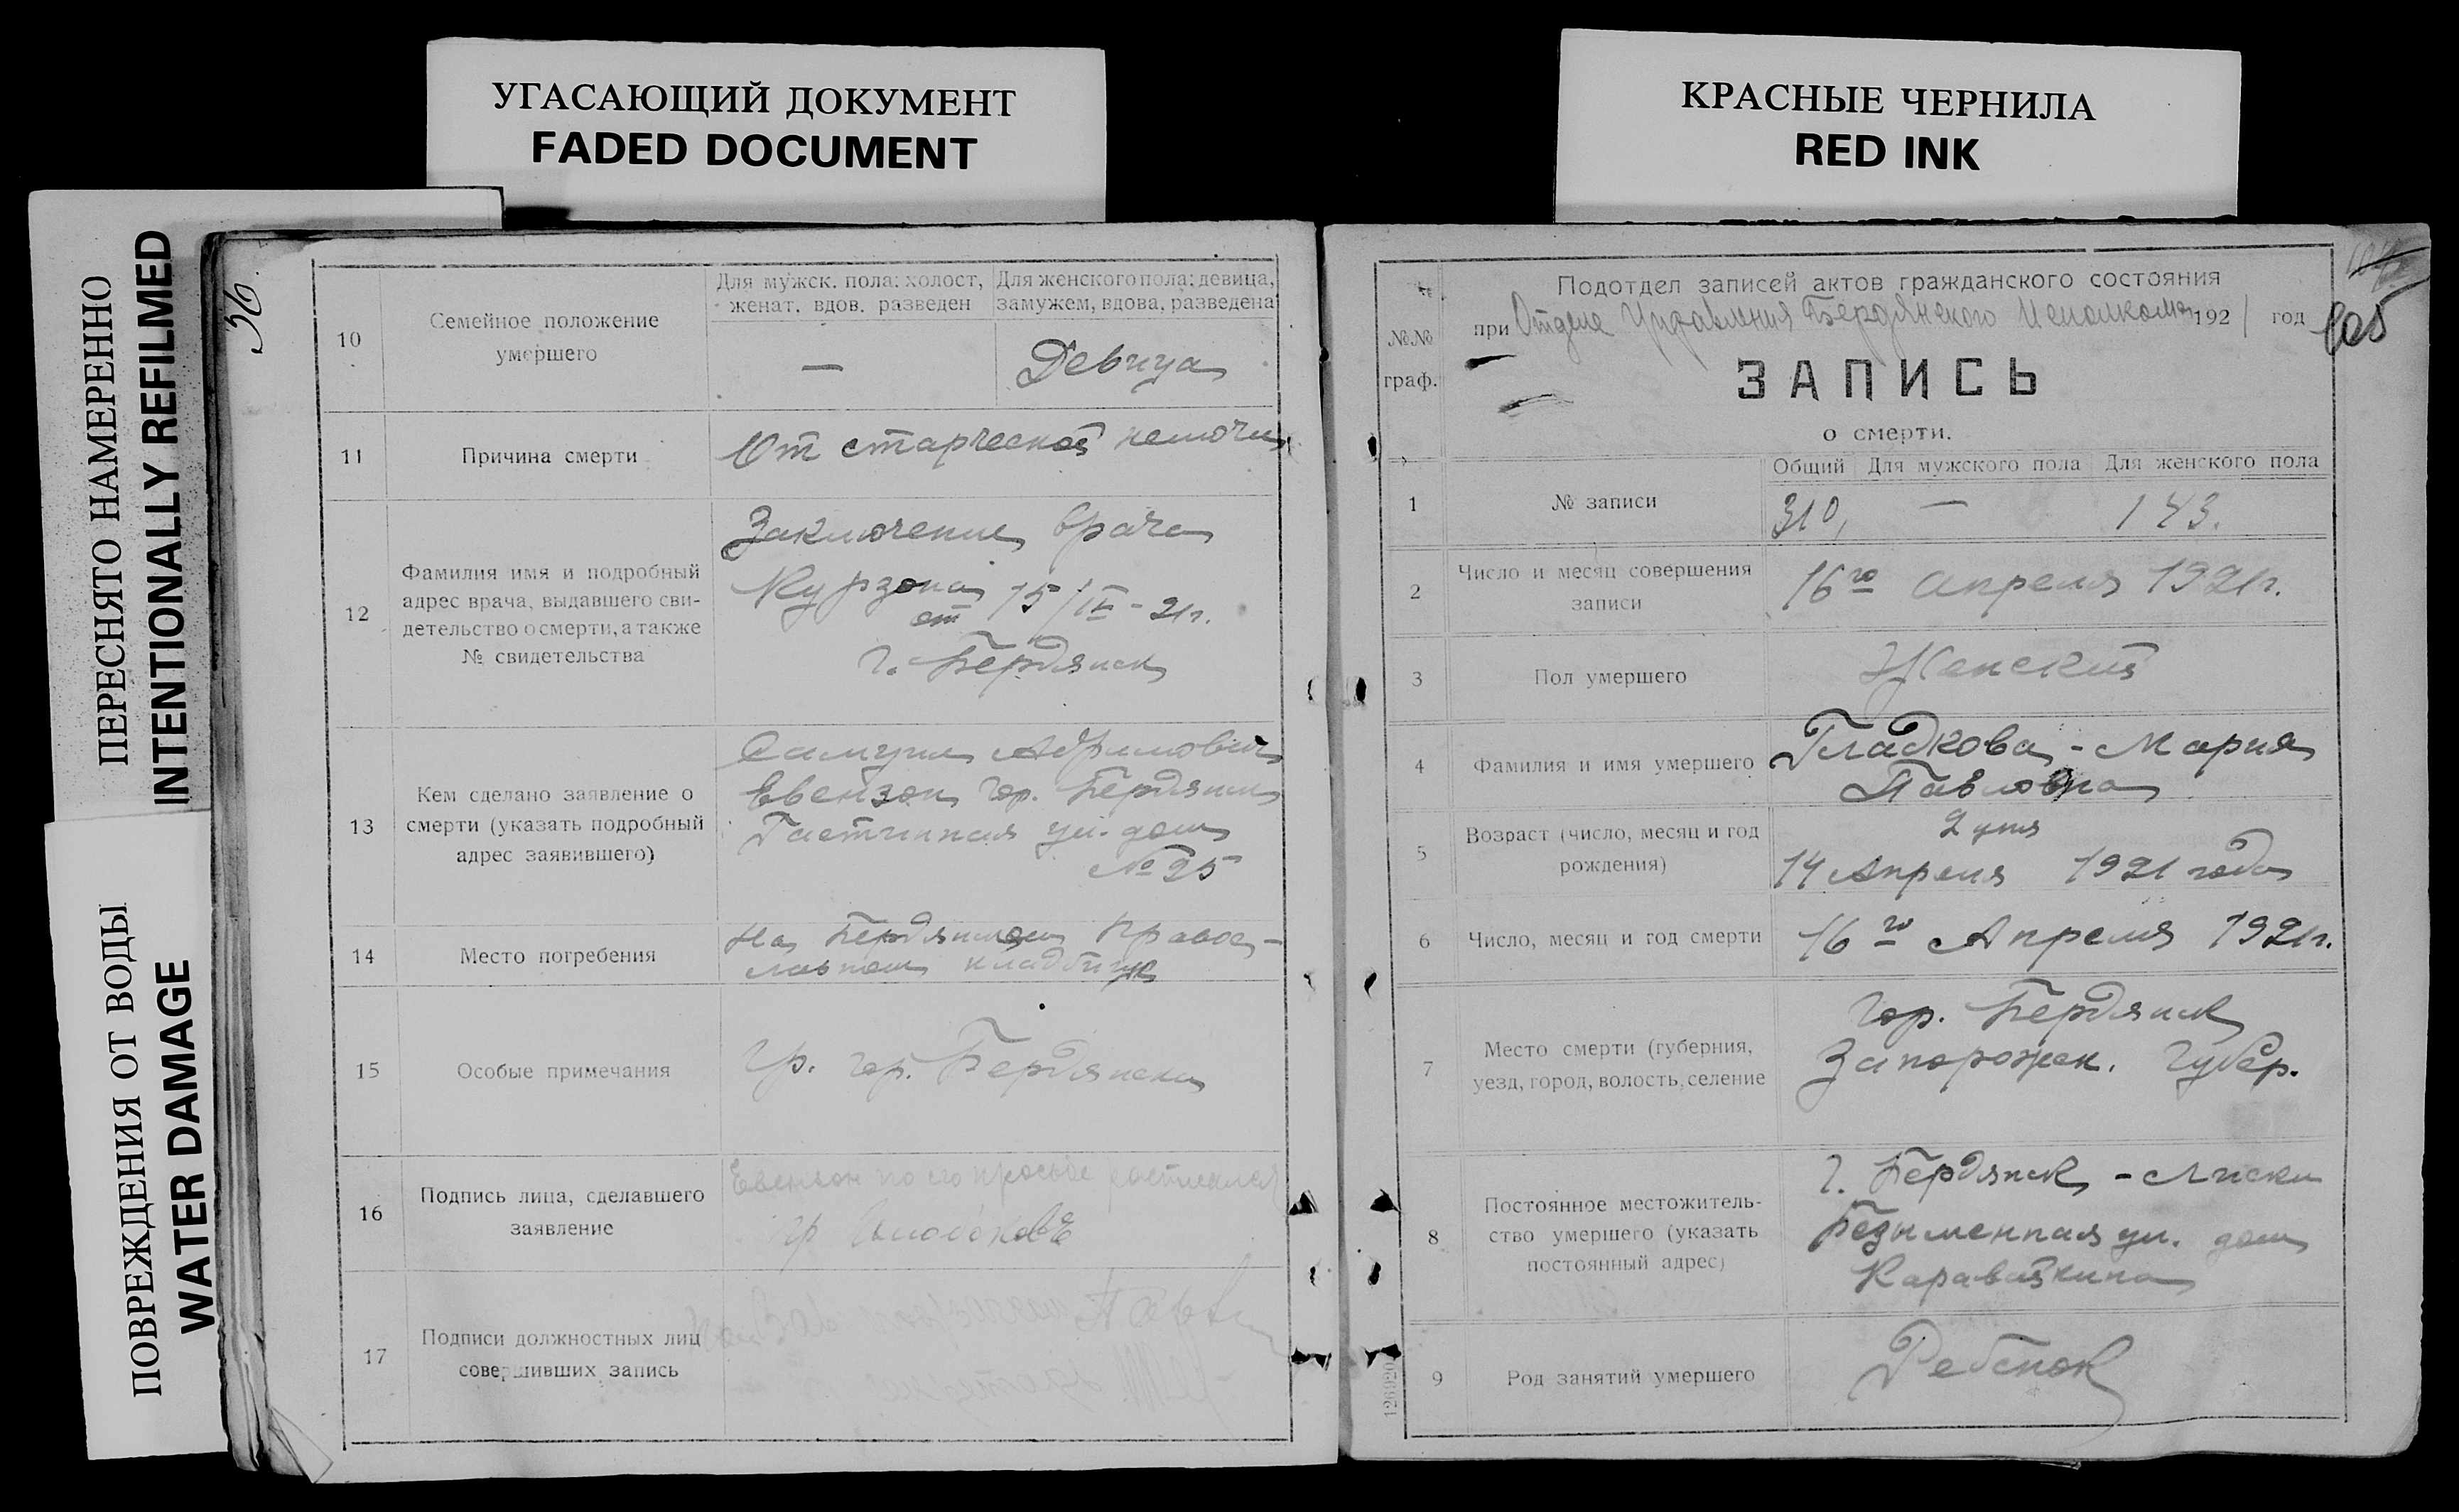 УГАСАЮЩИЙ ДОКУМЕНТ
FADED DOCUMENT
КРАСНЫЕ ЧЕРНИЛА
RED INK
ПЕРЕСНЯТО НАМЕРЕННО
INTENTIONALLY REFILMED
ПОВРЕЖДЕНИЯ ОТ ВОДЫ
WATER DAMAGE
36.
10
Семейное положение
умершего
Для мужск. пола: холост,
женат, вдов, разведен
Для женского пола: девица,
замужем, вдова, разведена
—
Девица
11
Причина смерти
От старческой немочи
12
Фамилия имя и подробный
адрес врача, выдавшего сви-
детельство о смерти, а также
№ свидетельства
Заключение врача
Курзона
от 15/IV - 21г.
г. Бердянск
13
Кем сделано заявление о
смерти (указать подробный
адрес заявившего)
Самуил
Евензон гор. Бердянск
ул. дом
№ 25
14
Место погребения
На Бердянском Правос-
лавном кладбище
15
Особые примечания
Гр. гор. Бердянска
16
Подпись лица, сделавшего
заявление
Евензон по его просьбе
гр
17
Подписи должностных лиц
совершивших запись
№№
граф.
Подотдел записей актов гражданского состояния
при Отделе Управления Бердянского Исполкома 1921 год
105
ЗАПИСЬ
о смерти.
1
№ записи
Общий Для мужского пола Для женского пола
310, — 143.
2
Число и месяц совершения
записи
16го Апреля 1921г.
3
Пол умершего
Женский
4
Фамилия и имя умершего
Гладкова - Мария
Павловна
5
Возраст (число, месяц и год
рождения)
2 дня
14 Апреля 1921 года
6
Число, месяц и год смерти
16го Апреля 1921г.
7
Место смерти (губерния,
уезд, город, волость, селение
Гор. Бердянск
Запорожск. Губер.
8
Постоянное местожитель-
ство умершего (указать
постоянный адрес)
г. Бердянск - Лиски
Безыменная ул. дом
Каравайкина
9
Род занятий умершего
Ребенок
126920